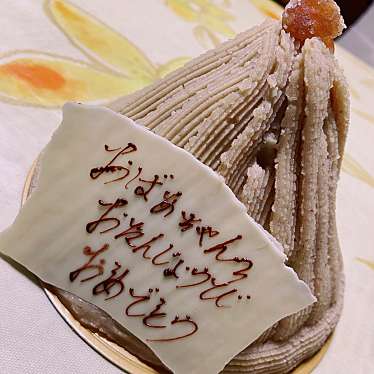 おばあちゃん
おたんじょうび
おめでとう